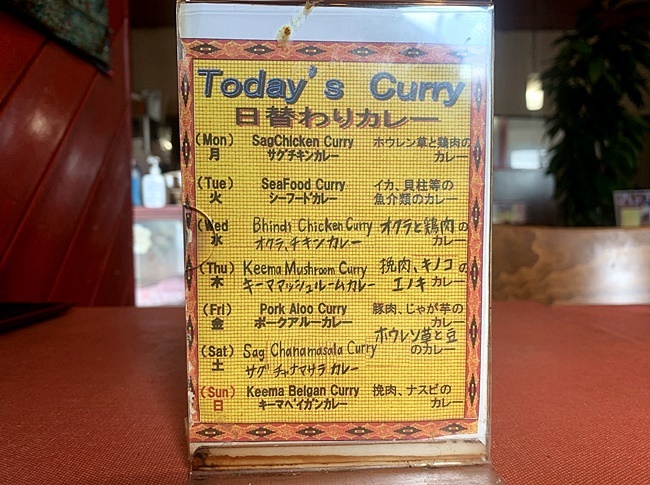 Today's Curry
日替わりカレー
(Mon) SagChicken Curry ホウレン草と鶏肉の
月 サグチキンカレー カレー
(Tue) SeaFood Curry イカ、貝柱等の
火 シーフードカレー 魚介類のカレー
(Wed Bhindi Chicken Curry オクラと鶏肉の
水 オクラ、チキンカレー カレー
(Thu) Keema Mushroom Curry 挽肉、キノコの
木 キーママッシュルームカレー エノキ カレー
(Fri) Pork Aloo Curry 豚肉、じゃが芋の
金 ポークアルーカレー カレー
ホウレソ草と豆
(Sat) Sag Chanamasala Curry のカレー
土 サグ チャナマサラ カレー
(Sun) Keema Beigan Curry 挽肉、ナスビの
日 キーマベイガンカレー カレー